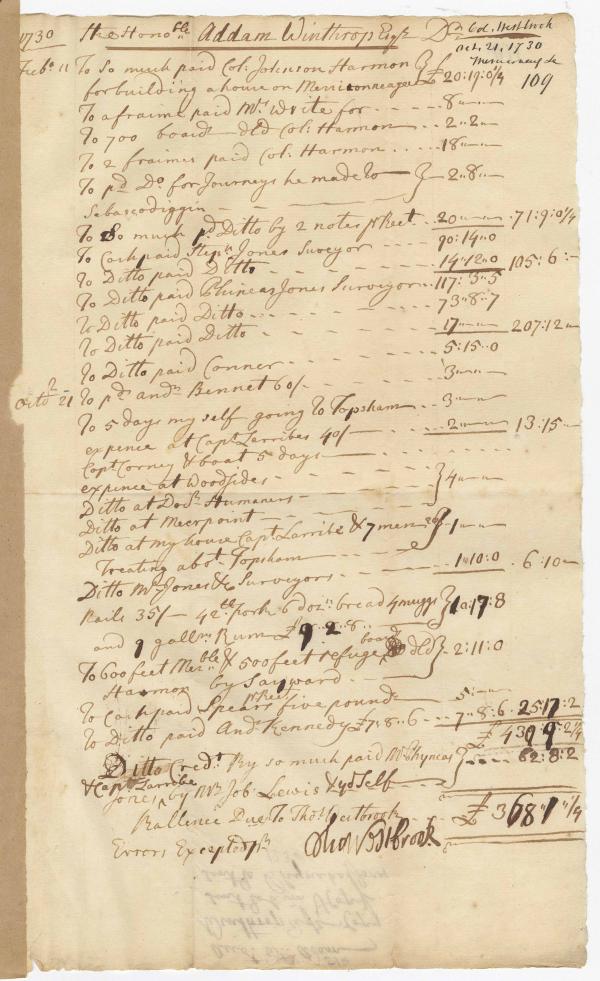 1730 the Honoble Addam Winthrop Esqr Dr
Col. Westbrook
Oct. 21, 1730
109
Feb. 11 To so much paid Col. Johnson Harmon
for building a house on Merriconneage £20:19:0¼
To a fraime paid Mr. Write for 8
To 700 boards dld Col: Harmon 2"2
To 2 fraimes paid Col. Harmon 18
To pd Do for Journeys he made to
Sebascodiggin 2"8
To So much pd Ditto by 2 notes pr Rect 20 71:9:0¼
To Cash paid Stepn Jones Suveyor 90:14:0
To Ditto paid Ditto 14:12:0 105:6:
To Ditto paid Phineas Jones Surveyor 117:3:5
To Ditto paid Ditto 73:8:7
To Ditto paid Ditto 17 207:12
To Ditto paid Conner 5:15:0
Octor 21 To pd andw Bennet 60/ 3
To 5 days my self going to Topsham 3
expence at Capt Larribes 40/ 2 13:15
Capt Corney & boat 5 days
expence at Woodsides
Ditto at Docr Humaners 4
Ditto at Meerpoint
Ditto at my house Capt Larribe & 7 men
Treating abot Topsham 1
Ditto Mr Jones & Surveyors 1:10:0 6:10
Rails 35/ 42 lb Pork 6 dozn bread 4 muggs
and 9 gallns Rum £9"2"8 10:17:8
To 600 feet Merble & 500 feet refuge board dld
Harmon by Sayward 2:11:0
To Cash paid Spears five pounds pr Rect 5
To Ditto paid Andw Kennedy £7:8:6 7:8:6 25:17:2
£430 9 2¼
Ditto Credt By so much paid Mr Phyneas
Jones, & Capt Larribe by Mr Job Lewis & yorself 62:8:2
Ballence Due To Thos Westbrook £368"1"¼
Errors Excepted pr
Thos Westbrook